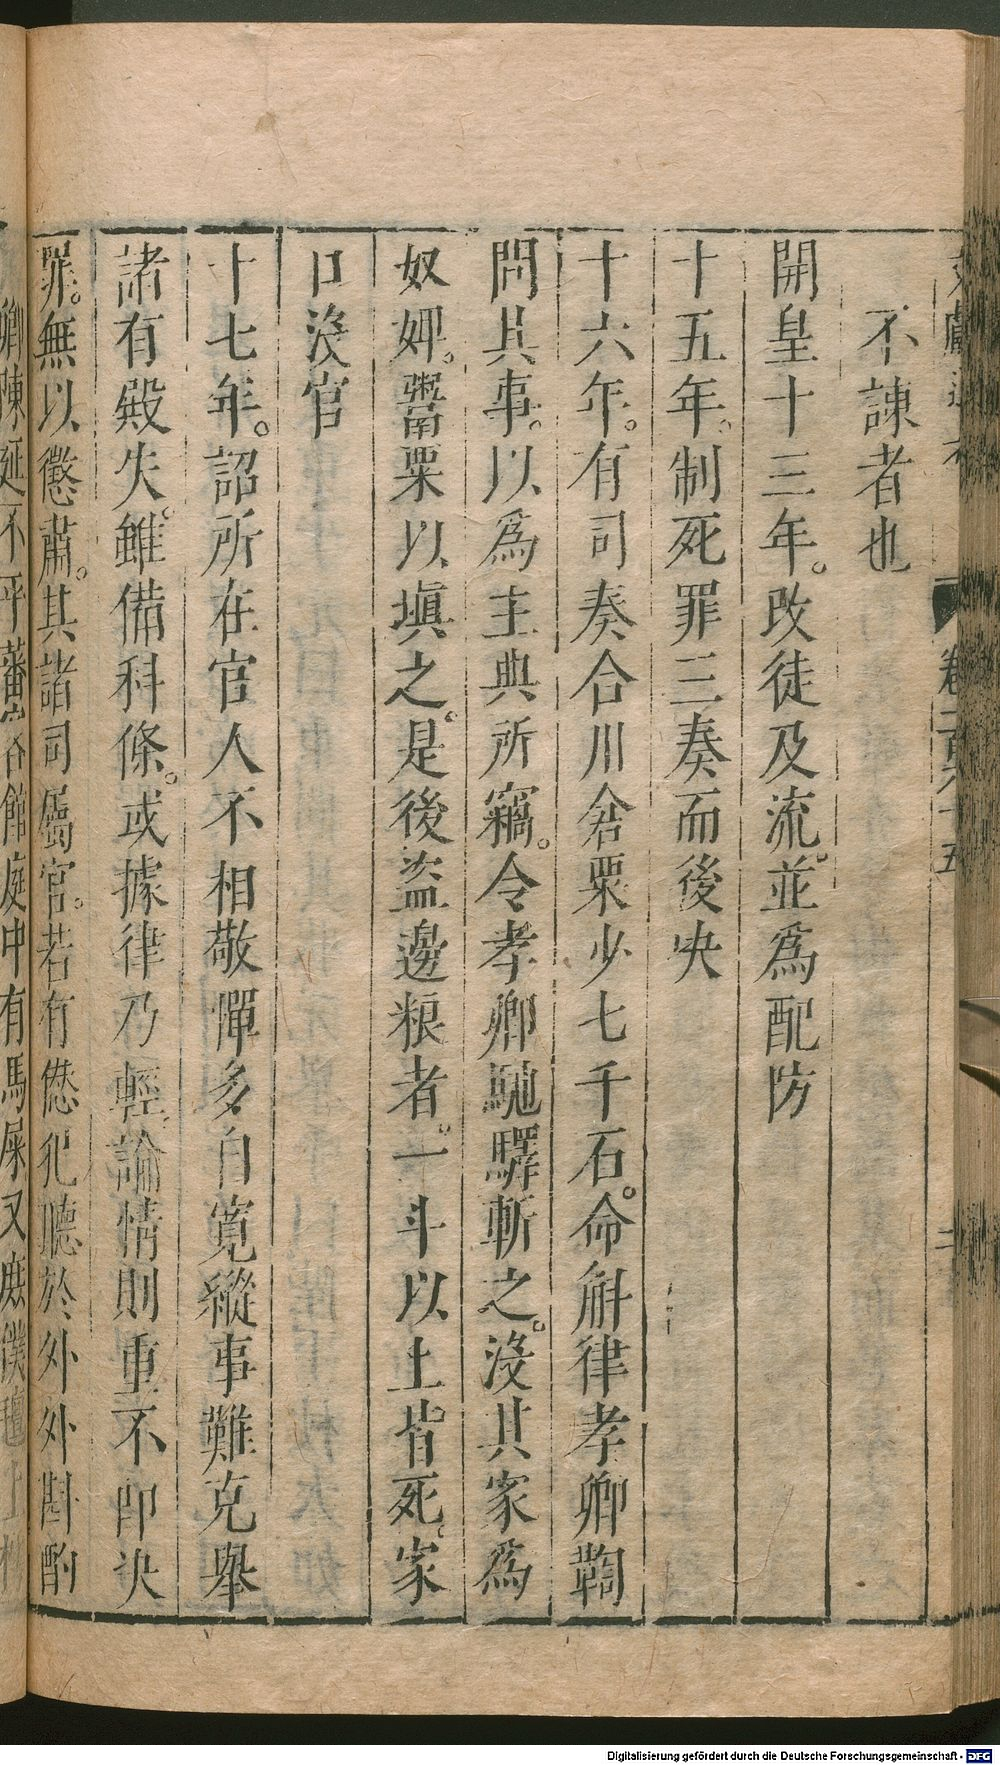 不諫者也
開皇十三年。改徒及流。並爲配防
十五年。制死罪三奏而後決
十六年。有司奏合川倉粟少七千石。命斛律孝卿鞫
問其事。以爲主典所竊。令孝卿馳驛斬之。沒其家爲
奴婢。鬻粟以塡之。是後盜邊粮者。一斗以上皆死。家
口沒官
十七年。詔所在官人不相敬憚多自寬縱事難克舉
諸有殿失。雖備科條。或據律乃輕。論情則重不即決
罪。無以懲肅。其諸司屬官。若有愆犯聽於外外斟酌
卿陳延不平蕃客館庭中有馬屎又庶僕氊上
卷一百六十五
Digitalisierung gefördert durch die Deutsche Forschungsgemeinschaft - DFG